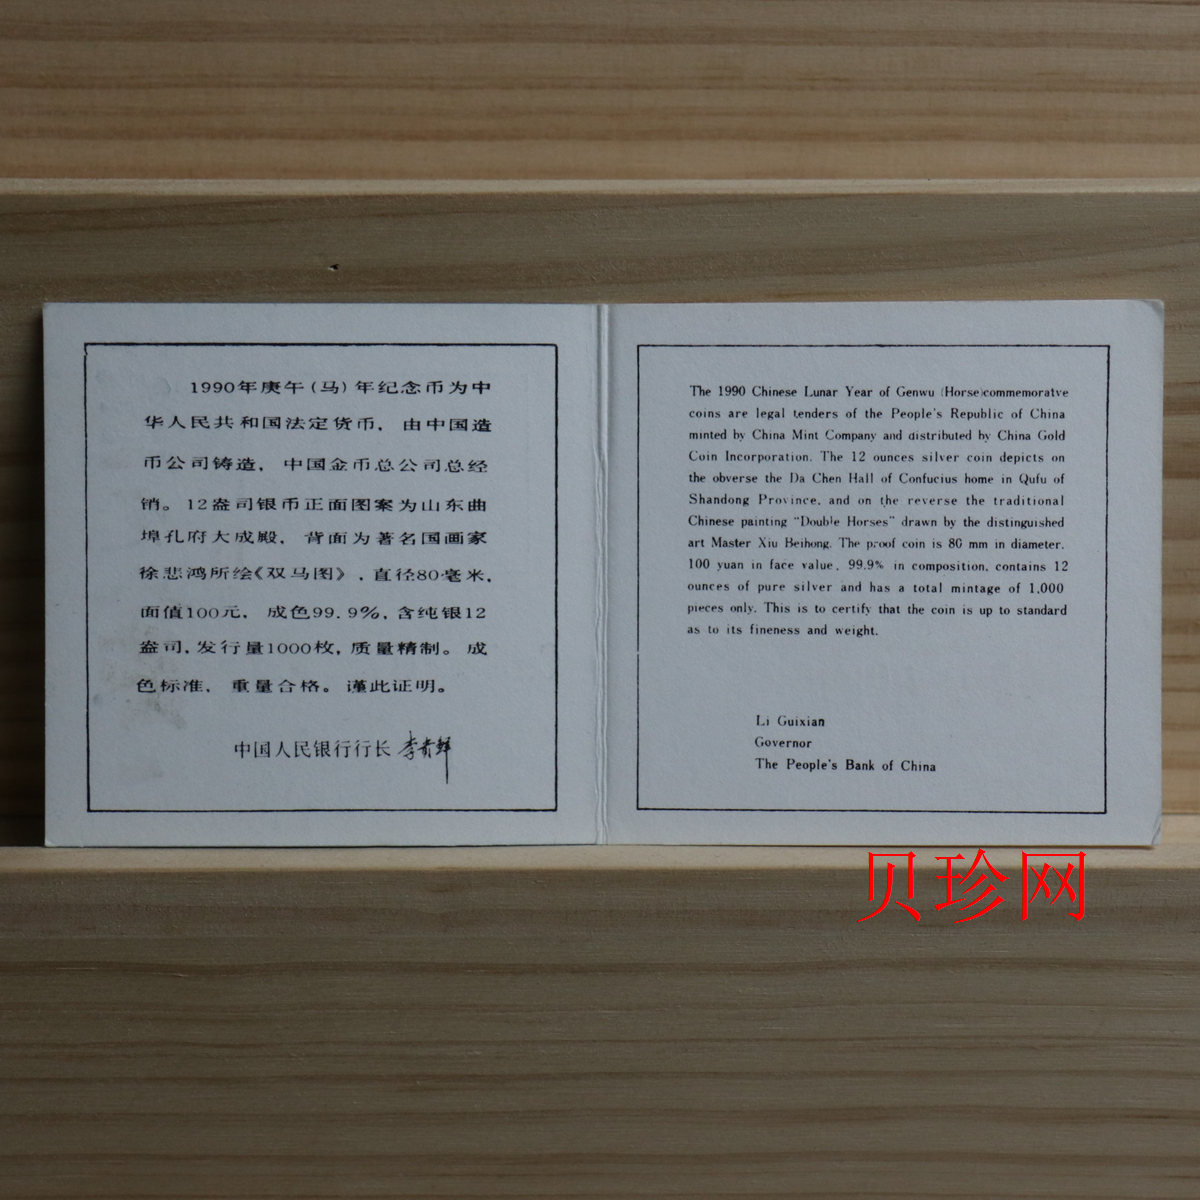 1990年庚午(马)年纪念币为中
华人民共和国法定货币，由中国造
币公司铸造，中国金币总公司总经
销。12盎司银币正面图案为山东曲
埠孔府大成殿，背面为著名国画家
徐悲鸿所绘《双马图》，直径80毫米，
面值100元，成色99.9%，含纯银12
盎司，发行量1000枚，质量精制。成
色标准，重量合格。谨此证明。
中国人民银行行长 李贵鲜
The 1990 Chinese Lunar Year of Genwu (Horse)commemoratve
coins are legal tenders of the People's Republic of China
minted by China Mint Company and distributed by China Gold
Coin Incorporation. The 12 ounces silver coin depicts on
the obverse the Da Chen Hall of Confucius home in Qufu of
Shandong Province, and on the reverse the traditional
Chinese painting "Double Horses" drawn by the distinguished
art Master Xiu Beihong. The proof coin is 80 mm in diameter,
100 yuan in face value, 99.9% in composition, contains 12
ounces of pure silver and has a total mintage of 1,000
pieces only. This is to certify that the coin is up to standard
as to its fineness and weight.
Li Guixian
Governor
The People's Bank of China
贝珍网